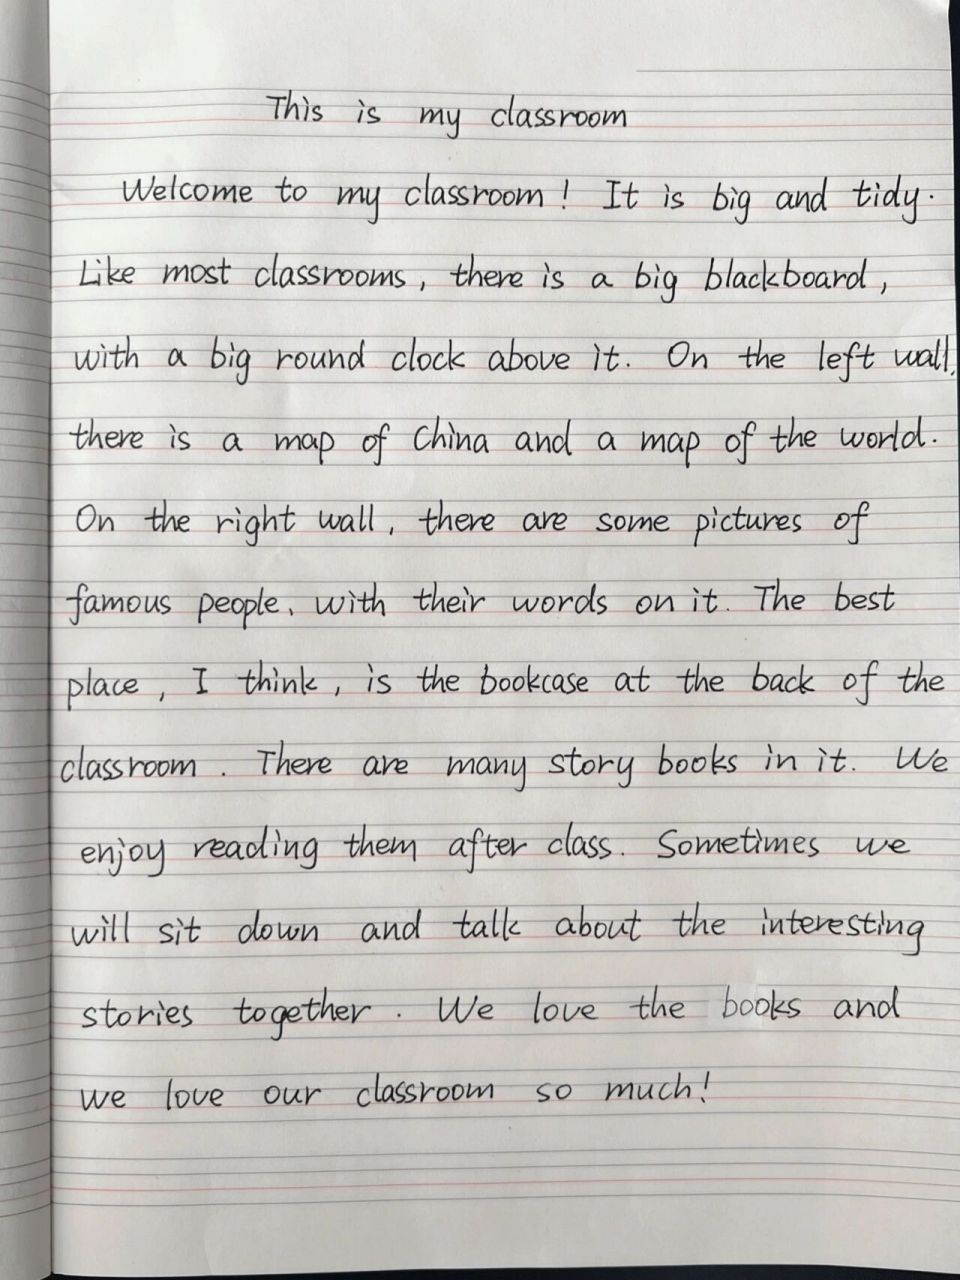 This is my classroom
Welcome to my classroom! It is big and tidy.
Like most classrooms, there is a big blackboard,
with a big round clock above it. On the left wall,
there is a map of China and a map of the world.
On the right wall, there are some pictures of
famous people, with their words on it. The best
place, I think, is the bookcase at the back of the
classroom. There are many story books in it. We
enjoy reading them after class. Sometimes we
will sit down and talk about the interesting
stories together. We love the books and
we love our classroom so much!